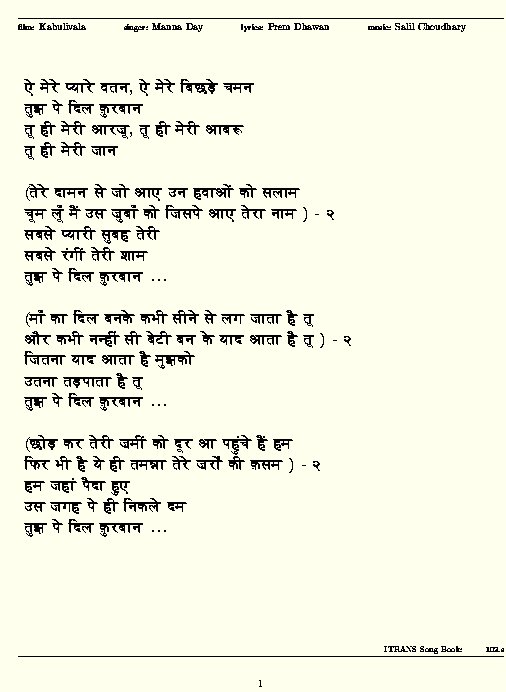 film: Kabulivala singer: Manna Day lyrics: Prem Dhawan music: Salil Choudhary
ऐ मेरे प्यारे वतन, ऐ मेरे बिछड़े चमन
तुझ पे दिल क़ुरबान
तू ही मेरी आरजू, तू ही मेरी आबरू
तू ही मेरी जान
(तेरे दामन से जो आए उन हवाओं को सलाम
चूम लूँ मैं उस जुबाँ को जिसपे आए तेरा नाम ) - २
सबसे प्यारी सुबह तेरी
सबसे रंगीं तेरी शाम
तुझ पे दिल क़ुरबान ...
(माँ का दिल बनके कभी सीने से लग जाता है तू
और कभी नन्हीं सी बेटी बन के याद आता है तू ) - २
जितना याद आता है मुझको
उतना तड़पाता है तू
तुझ पे दिल क़ुरबान ...
(छोड़ कर तेरी जमीं को दूर आ पहुंचे हैं हम
फिर भी है ये ही तमन्ना तेरे जर्रों की क़सम ) - २
हम जहां पैदा हुए
उस जगह पे ही निकले दम
तुझ पे दिल क़ुरबान ...
ITRANS Song Book
1